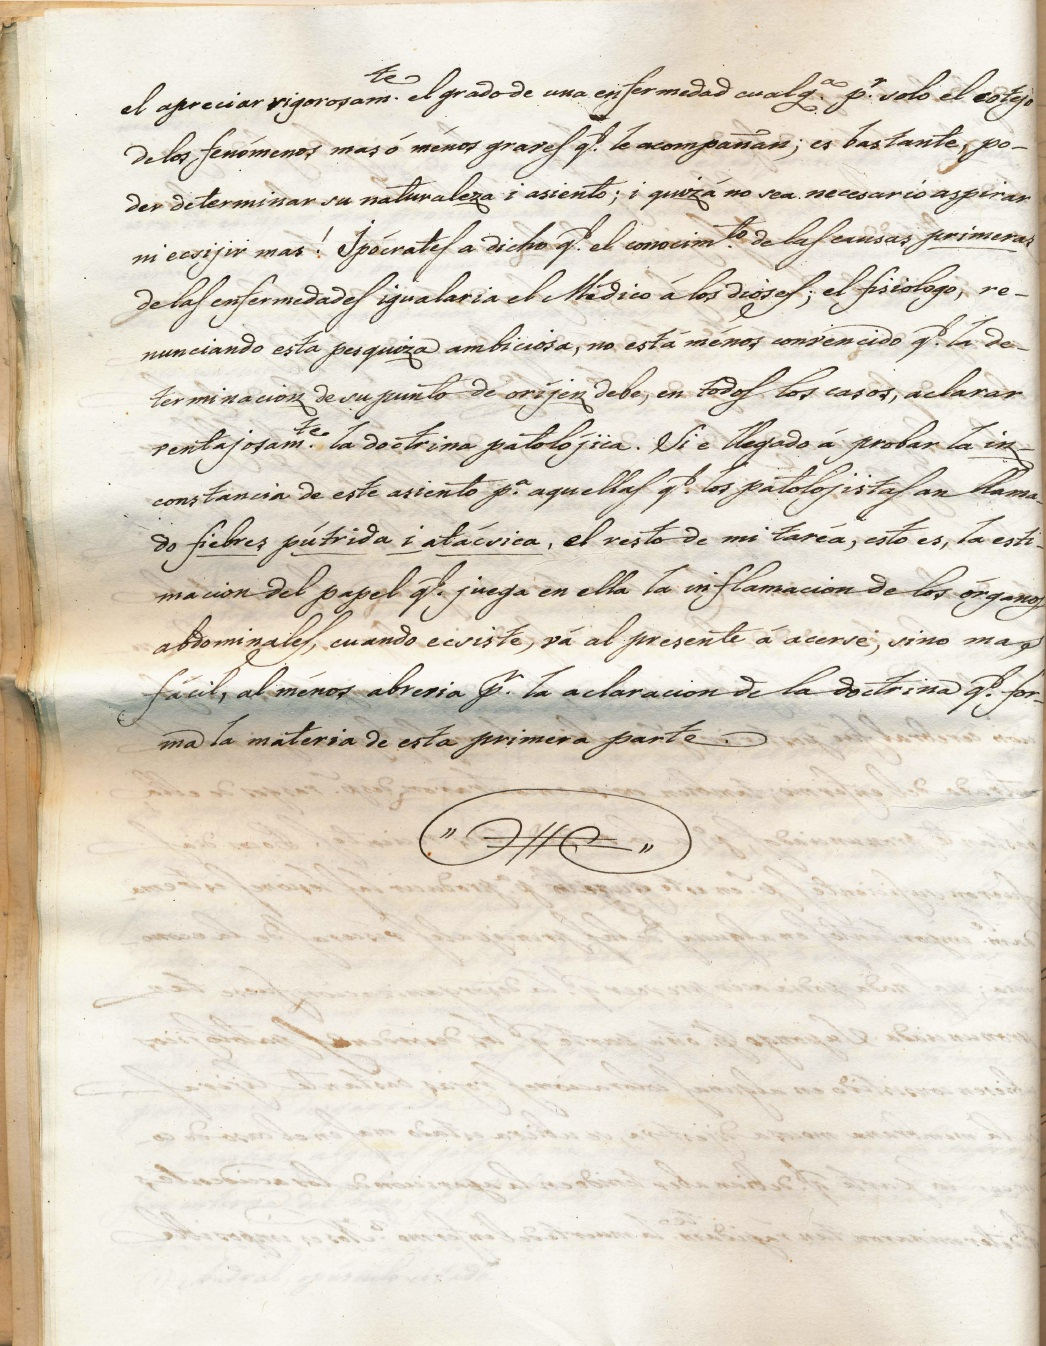 el apreciar vigorosam.te el grado de una enfermedad cualq.a p.r solo el cotejo
de los fenómenos mas ó ménos graves q.e le acompañan; es bastante, po-
der determinar su naturaleza i asiento; i quizá no sea necesario aspirar
ni ecsijir mas! Ipócrates a dicho q.e el conocim.to de las causas primeras
de las enfermedades igualaria el Médico á los dioses; el fisiologo, re-
nunciando esta pesquiza ambiciosa, no está ménos convencido q.e la de-
terminacion de su punto de oríjen debe, en todos los casos, aclarar
ventajosam.te la doctrina patolojica. Si e llegado á probar la in-
constancia de este asiento p.a aquellas q.e los patolojistas an llama-
do fiebres pútrida i atácsica, el resto de mi taréa, esto es, la esti-
macion del papel q.e juega en ella la inflamacion de los órganos
abdominales, cuando ecsiste, vá al presente á acerse, sino mas
fácil, al ménos abrevia p.r la aclaracion de la doctrina q.e for-
ma la materia de esta primera parte.